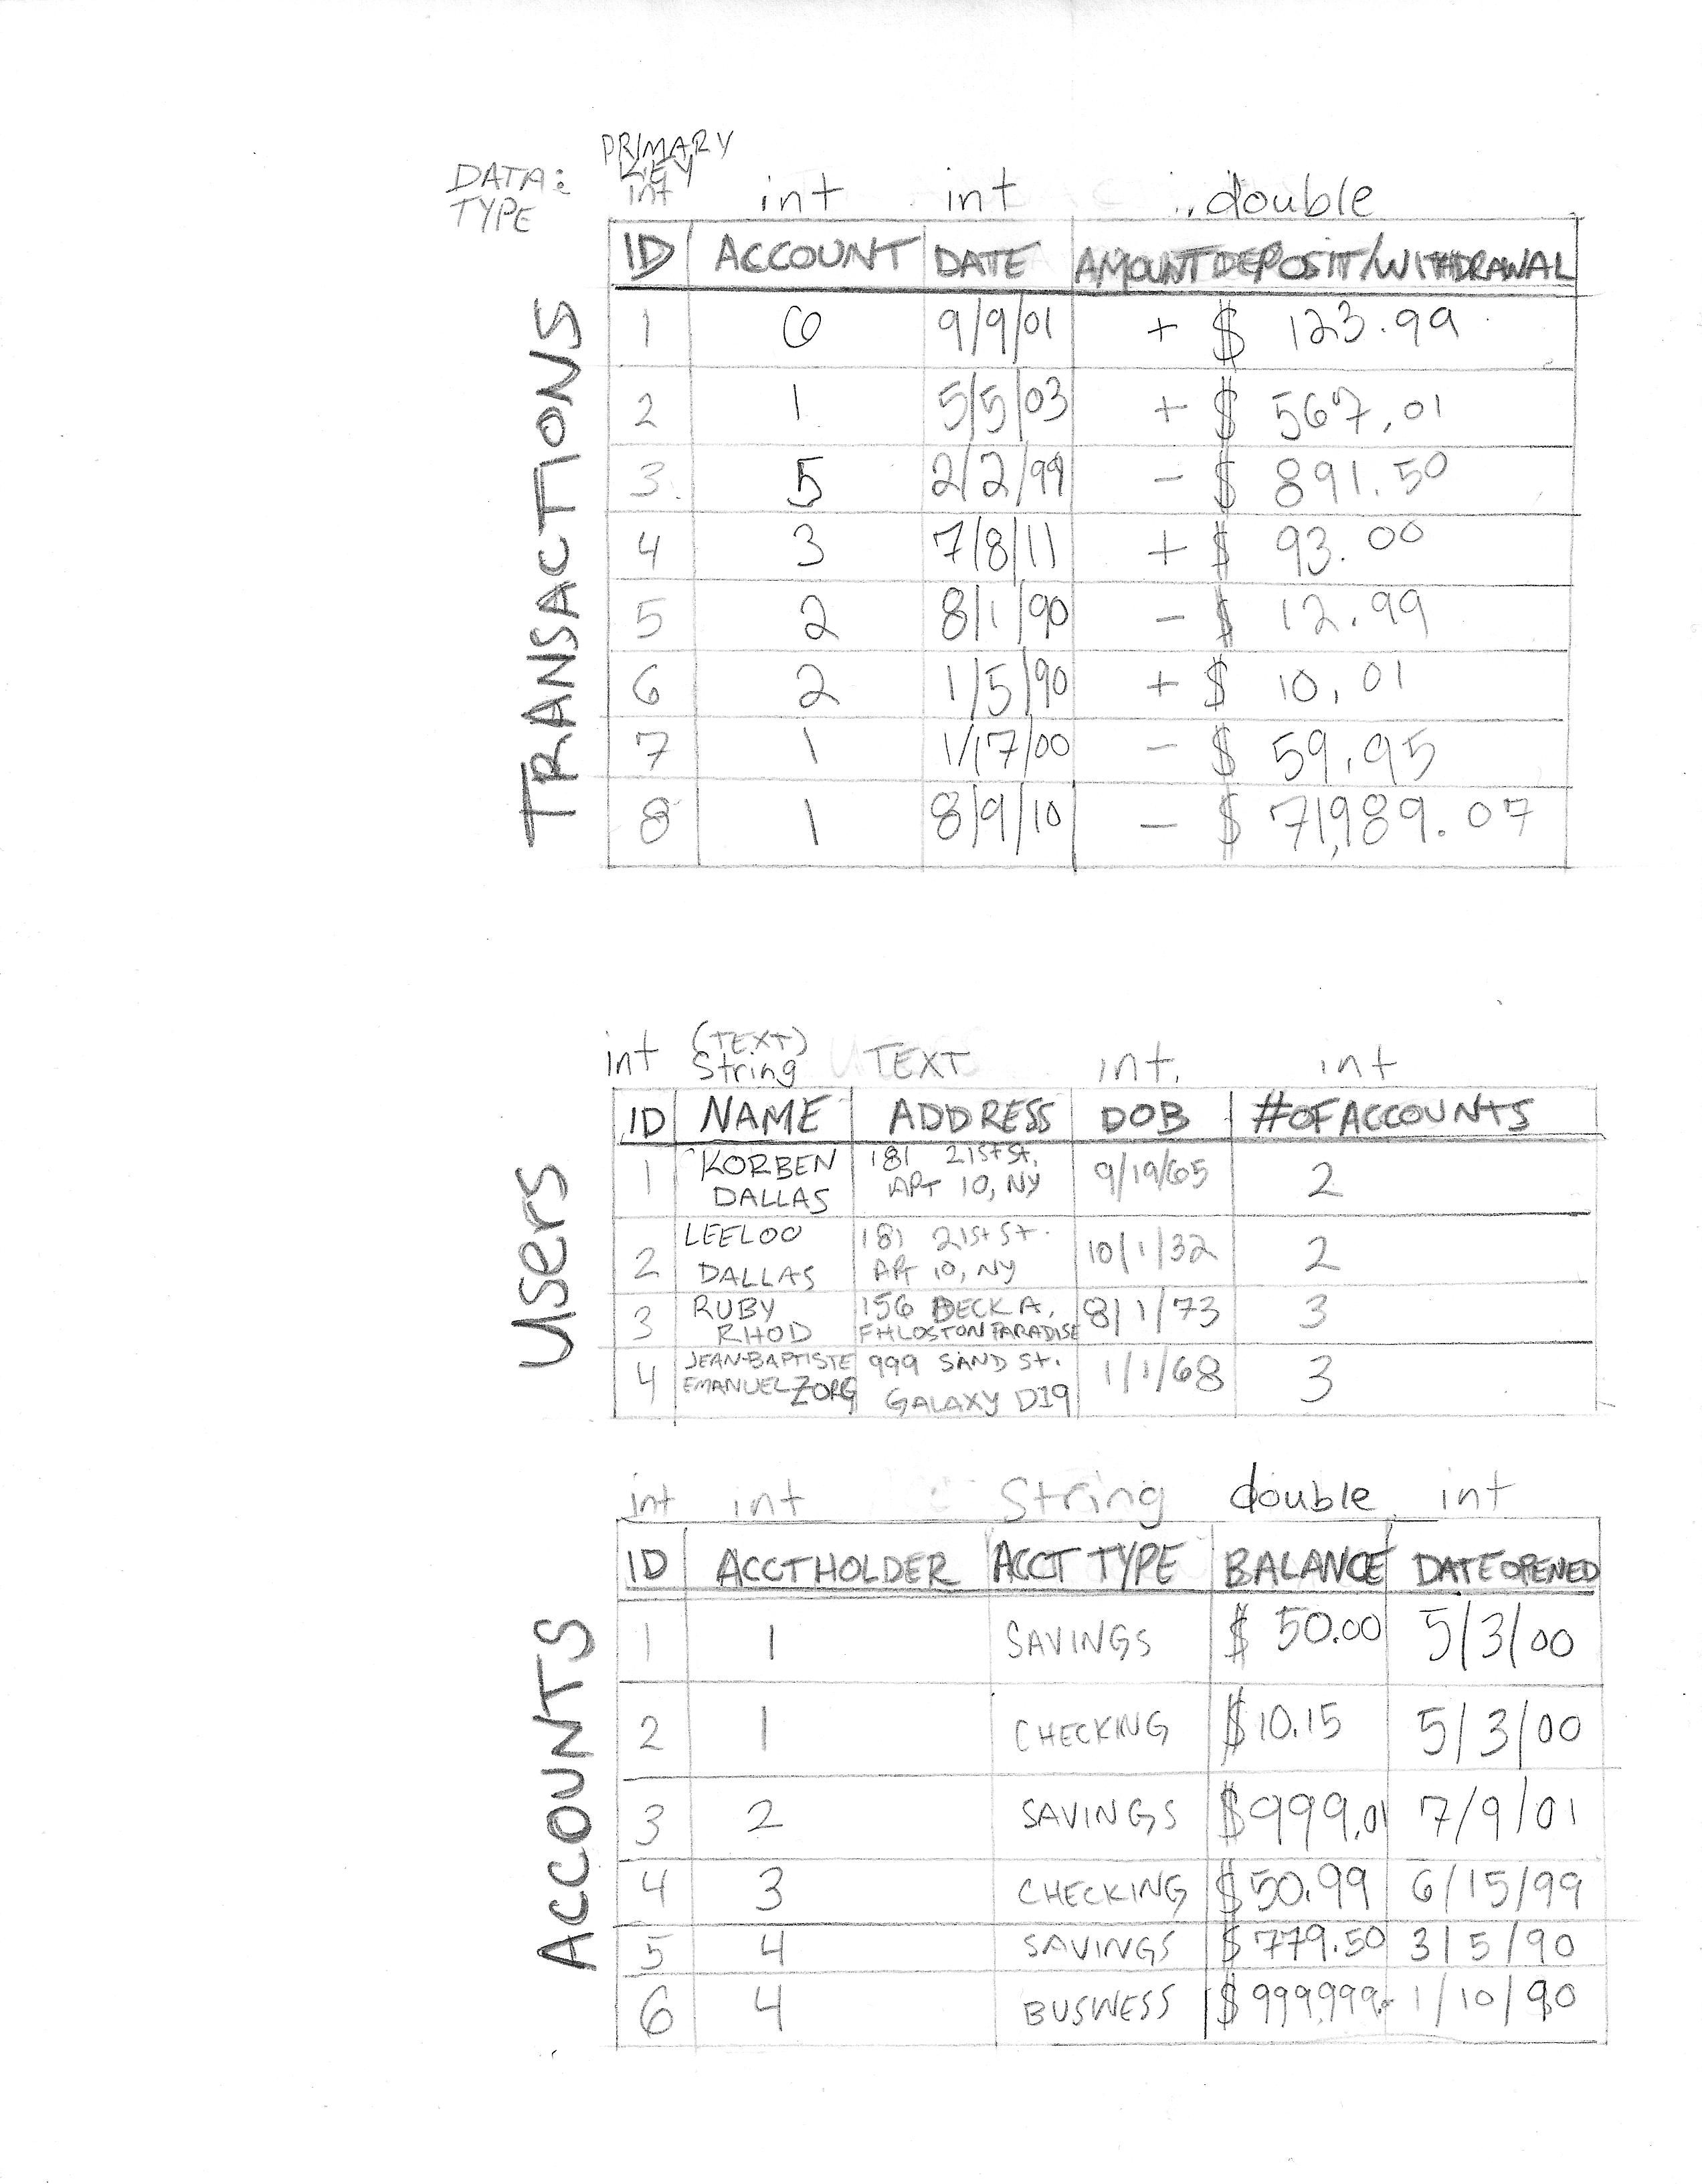 PRIMARY
KEY
DATA:
TYPE
int int int double
TRANSACTIONS
ID ACCOUNT DATE AMOUNT DEPOSIT/WITHDRAWAL
1 6 9/9/01 + $ 123.99
2 1 5/5/03 + $ 567.01
3 5 2/2/99 - $ 891.50
4 3 7/8/11 + $ 93.00
5 2 8/1/90 - $ 12.99
6 2 1/5/90 + $ 10.01
7 1 1/17/00 - $ 59.95
8 1 8/9/10 - $ 71,989.07
(TEXT)
int String TEXT int. int
Users
ID NAME ADDRESS DOB #OF ACCOUNTS
1 KORBEN DALLAS 181 21st St. APT 10, NY 9/19/65 2
2 LEELOO DALLAS 181 21st St. APT 10, NY 10/1/32 2
3 RUBY RHOD 156 DECK A, FHLOSTON PARADISE 8/1/73 3
4 JEAN-BAPTISTE EMANUEL ZORG 999 SAND St. GALAXY D19 1/1/68 3
int int String double int
ACCOUNTS
ID ACCTHOLDER ACCT TYPE BALANCE DATE OPENED
1 1 SAVINGS $ 50.00 5/3/00
2 1 CHECKING $10.15 5/3/00
3 2 SAVINGS $999.01 7/9/01
4 3 CHECKING $50.99 6/15/99
5 4 SAVINGS $779.50 3/5/90
6 4 BUSINESS $999,999. 1/10/90